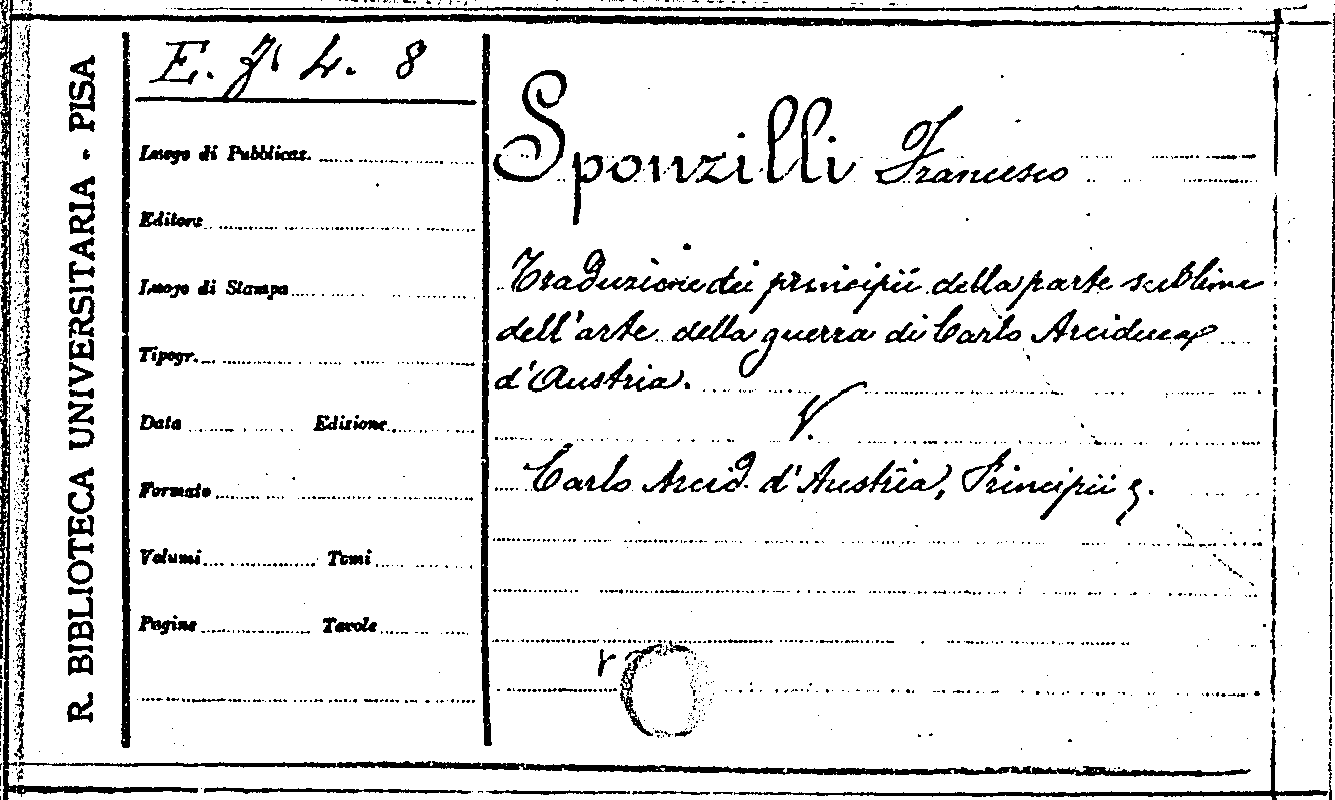 R. BIBLIOTECA UNIVERSITARIA - PISA
E. f. 4. 8
Luogo di Pubblicaz.
Editore
Luogo di Stampa
Tipogr.
Data Edizione
Formato
Volumi Tomi
Pagine Tavole
Sponzilli Francesco
Traduzione dei principii della parte sublime
dell'arte della guerra di Carlo Arciduca
d'Austria.
V.
Carlo Arcid. d'Austria, Principii
r